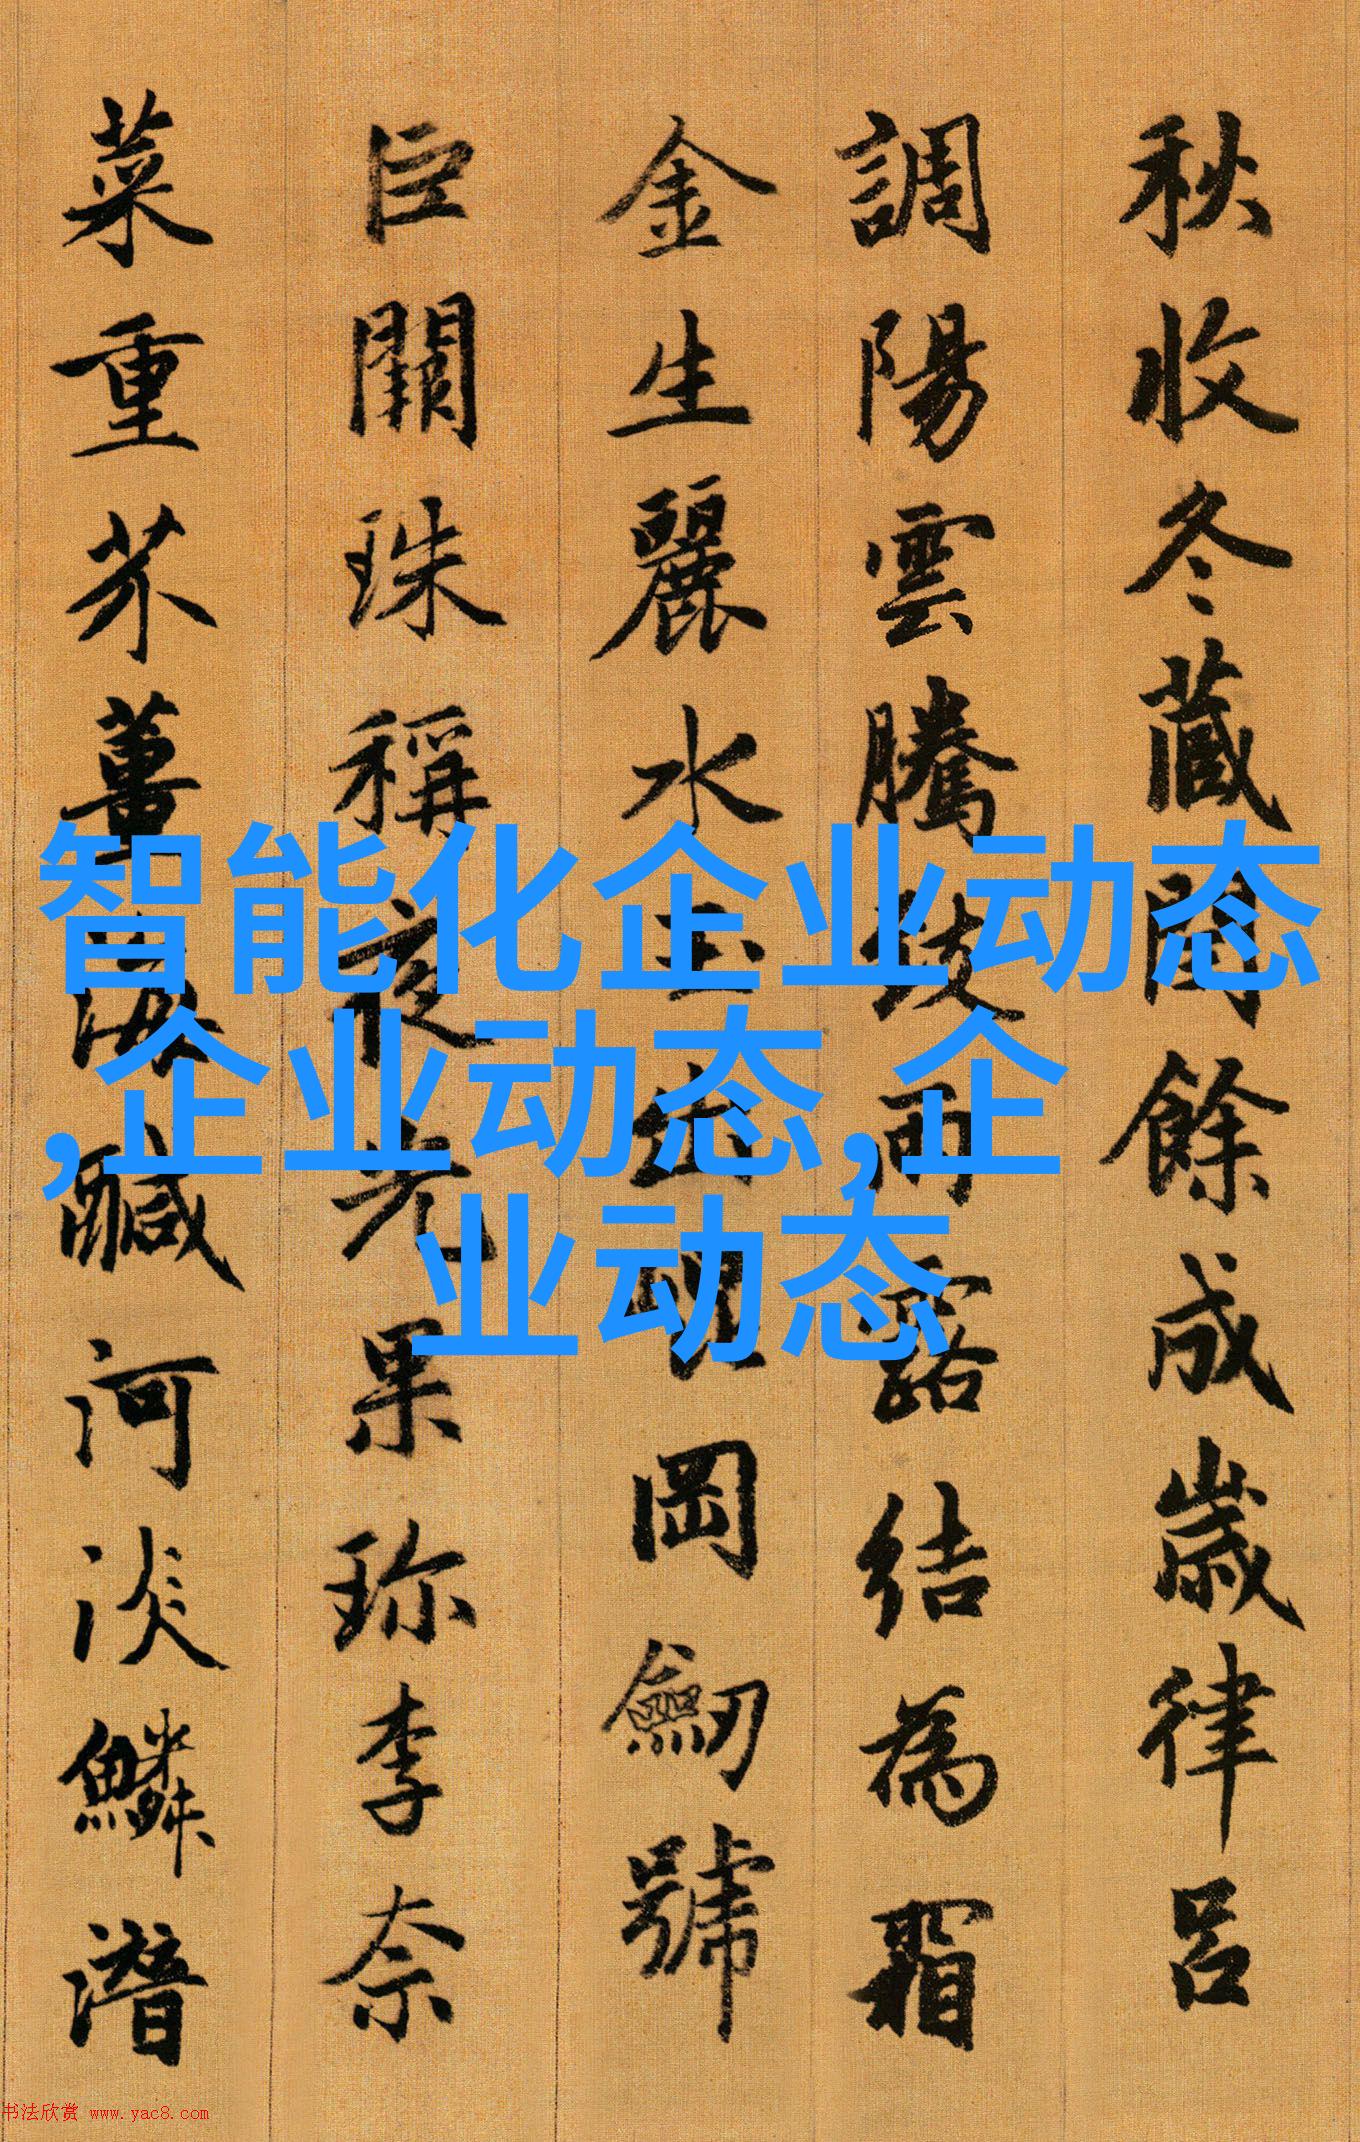 秋收冬藏閏餘成歲律呂
調陽雲騰致雨露結為霜
金生麗水玉出岡劒號
巨闕珠稱夜光果珍李奈
菜重芥薑海鹹河淡鱗潛
智能化企业动态
,企业动态,企
业动态
书法欣赏 www.yac8.com